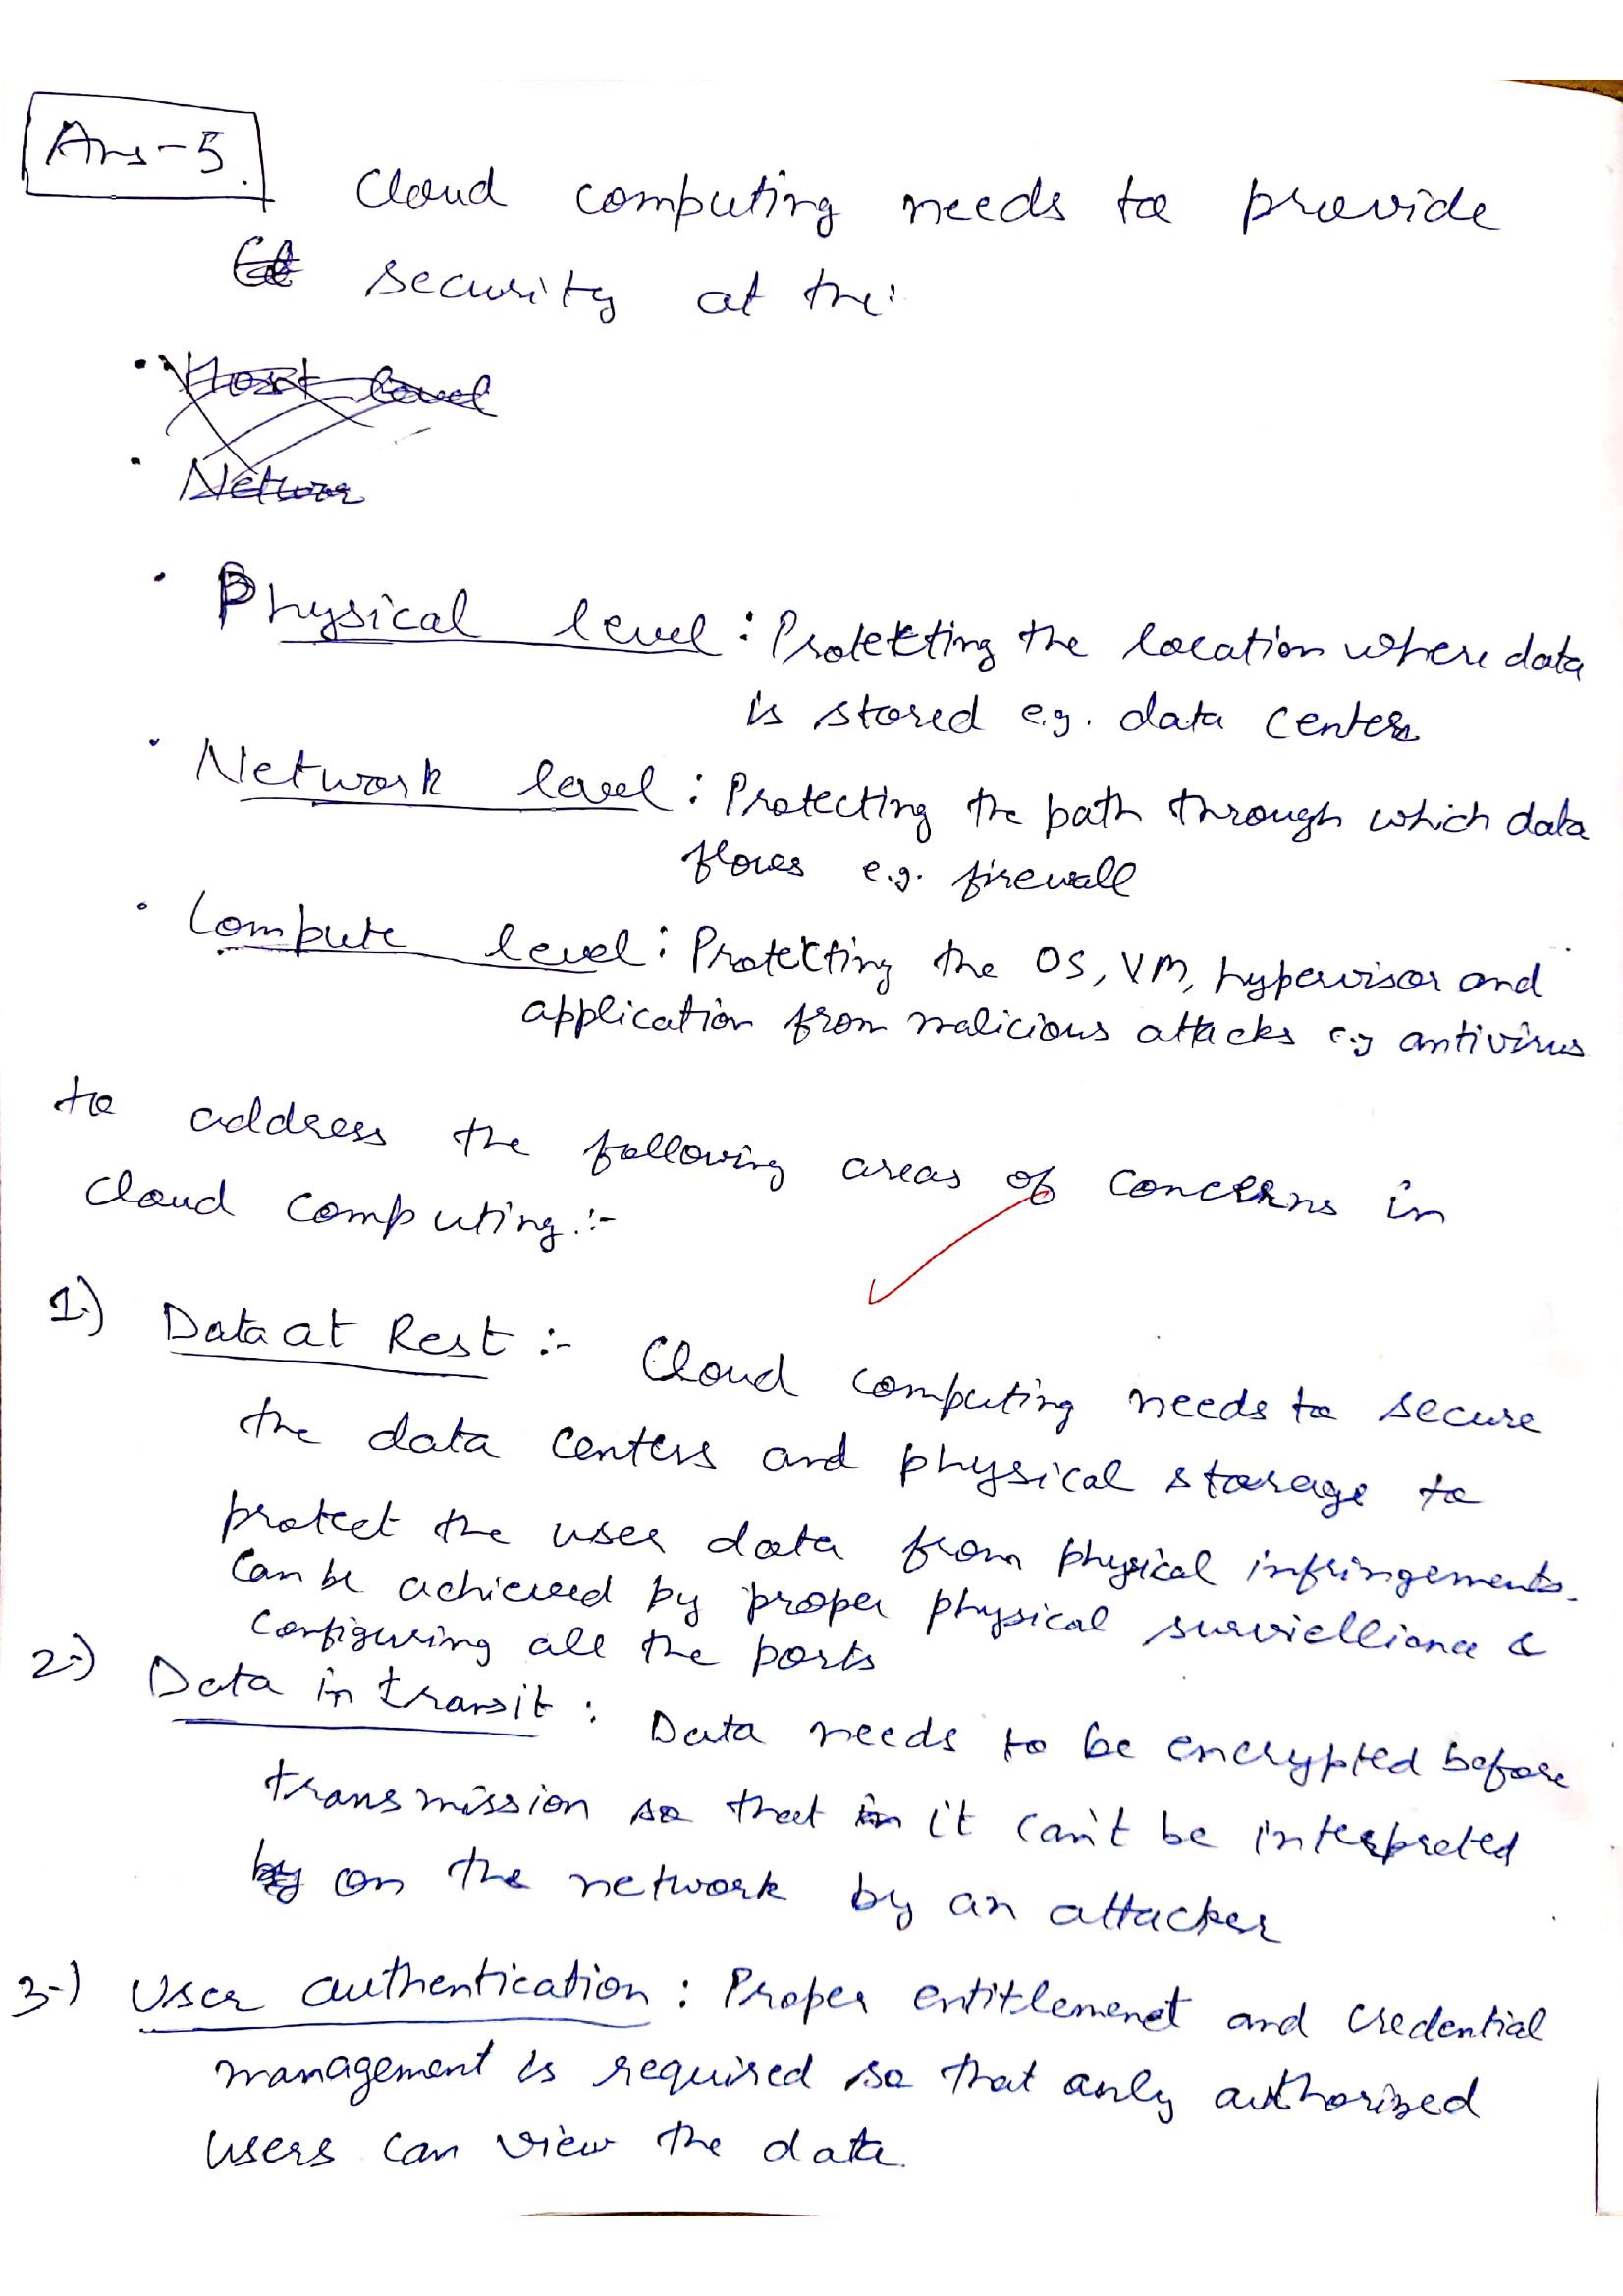 Ans-5.
Cloud computing needs to provide
security at the:
Host level
Networ
Physical level: Protecting the location where data
is stored e.g. data centers
Network level: Protecting the path through which data
flows e.g. firewall
Compute level: Protecting the OS, VM, hypervisor and
application from malicious attacks e.g antivirus
to address the following areas of concerns in
cloud computing:-
1.) Data at Rest :- Cloud computing needs to secure
the data centers and physical storage to
protect the user data from physical infringements.
Can be achieved by proper physical survielliance &
configuring all the ports
2.) Data in transit : Data needs to be encrypted before
transmission so that it can't be interpreted
on the network by an attacker
3.) User authentication : Proper entitlemenet and credential
management is required so that only authorized
users can view the data.